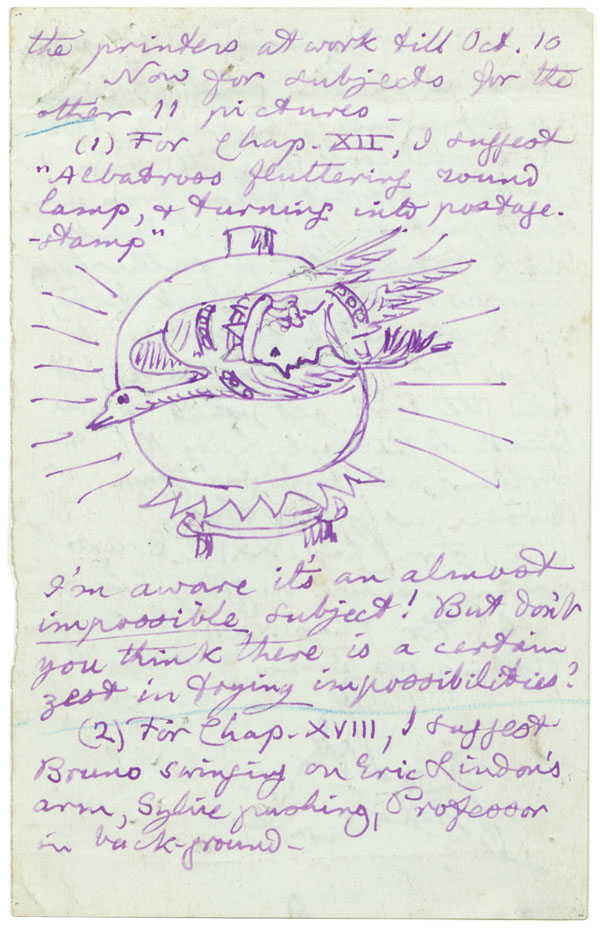 the printers at work till Oct. 10
Now for subjects for the
other 11 pictures_
(1) For Chap. XII, I suggest
"Albatross fluttering round
lamp, & turning into postage-
-stamp"
I'm aware it's an almost
impossible subject! But don't
you think there is a certain
zest in trying impossibilities?
(2) For Chap. XVIII, I suggest
Bruno swinging on Eric Lindon's
arm, Sylvie pushing, Professor
in back-ground—